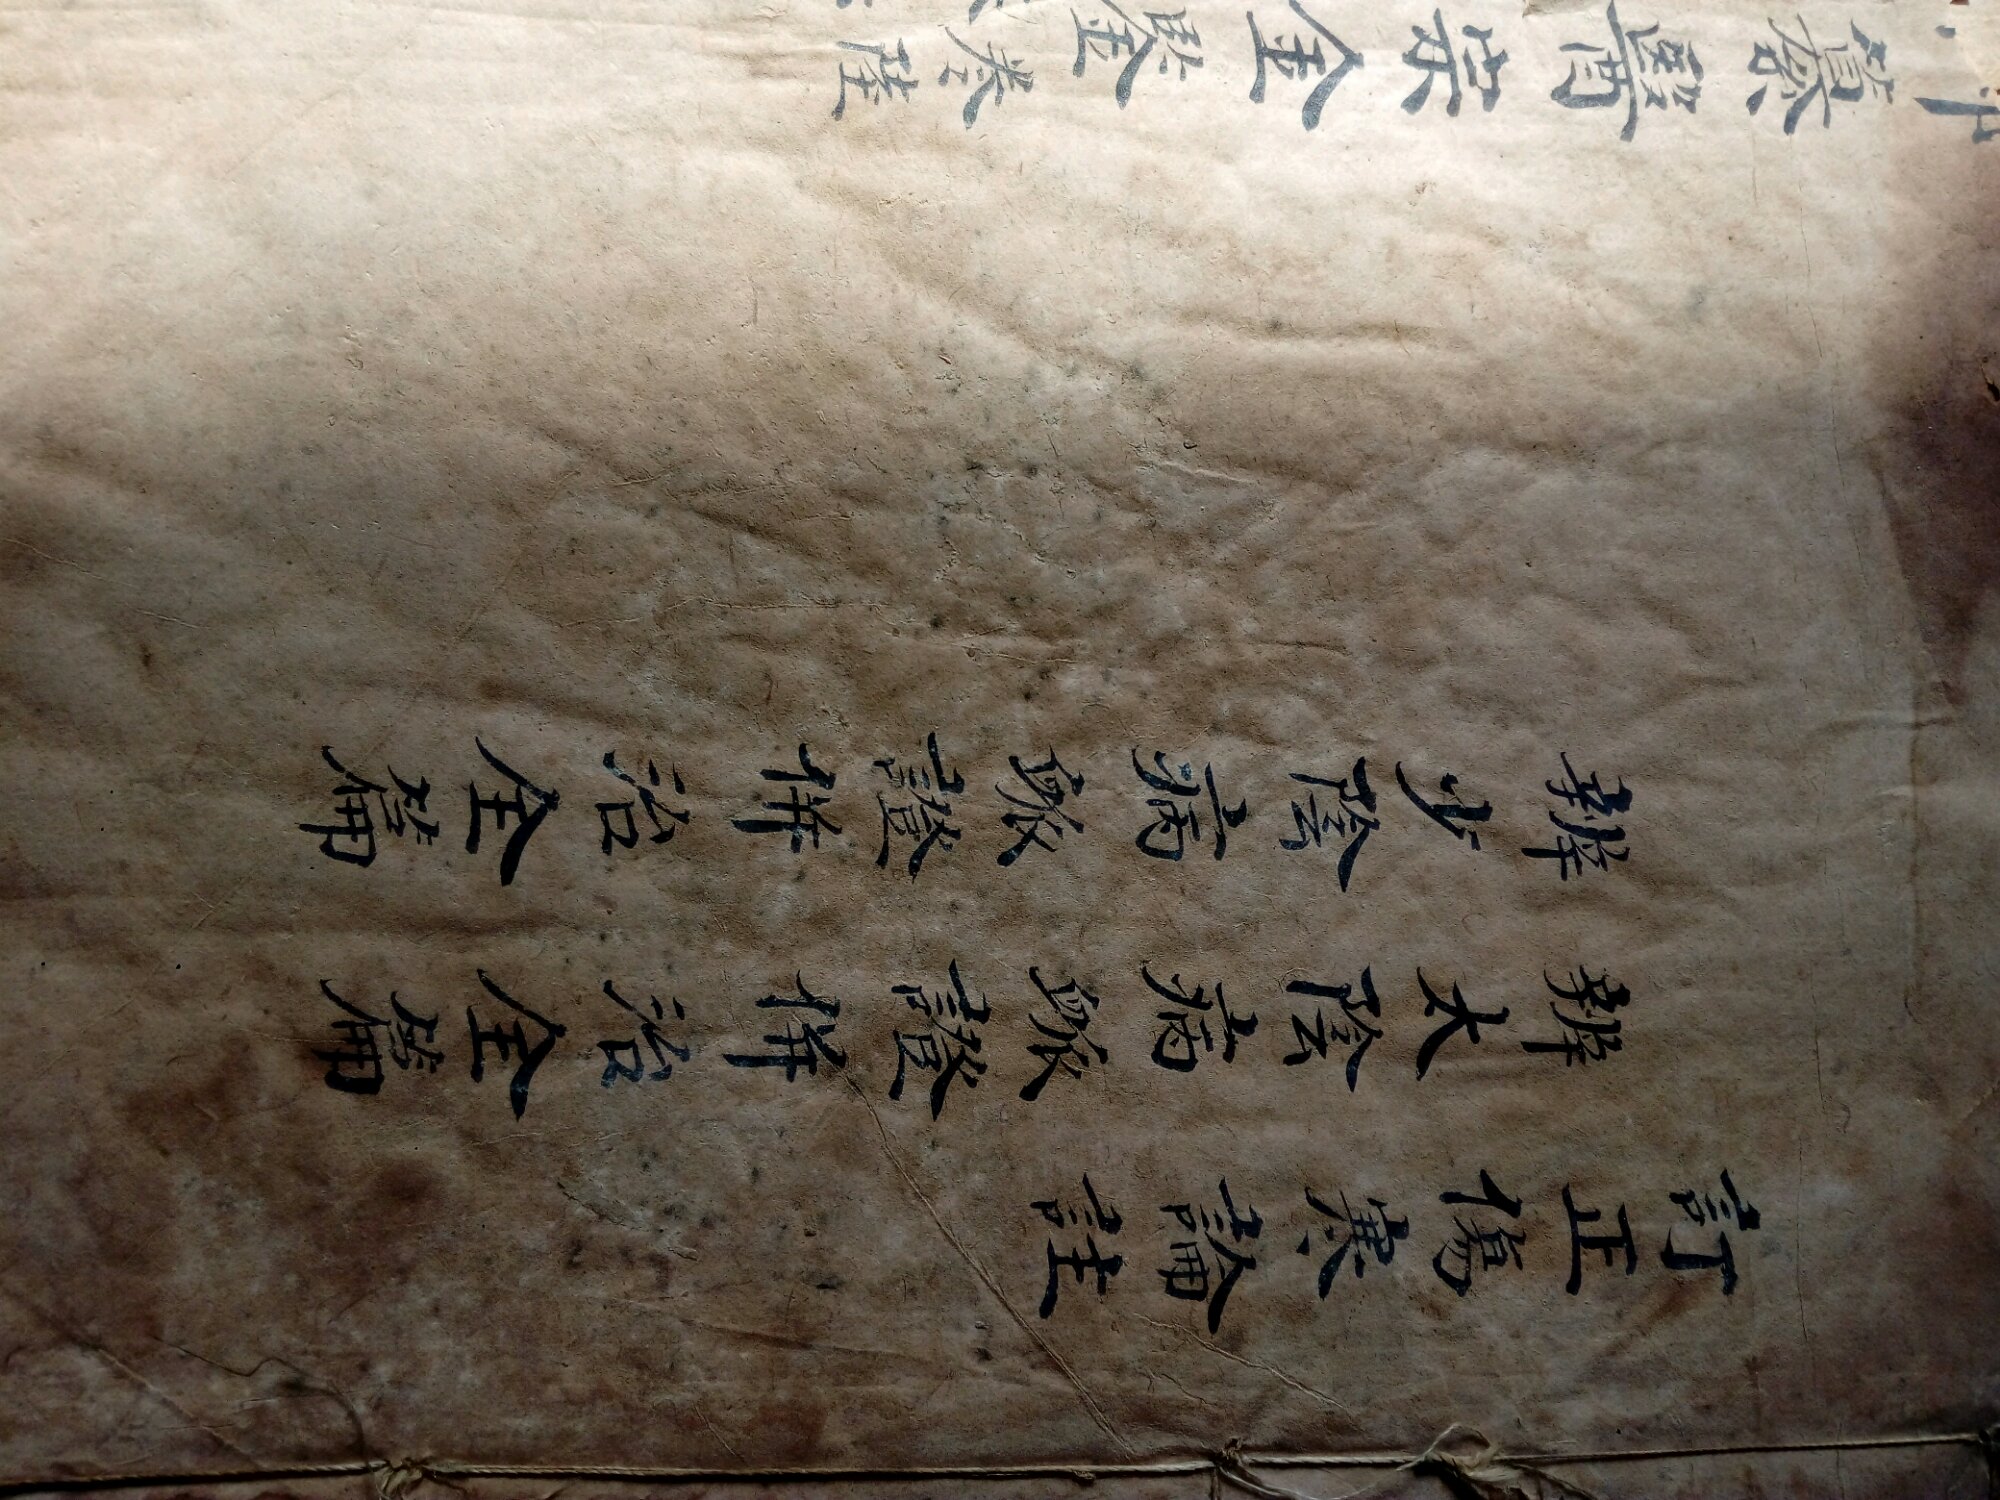 訂正傷寒論註
辨太陰病脉證併治全篇
辨少陰病脉證併治全篇
御纂醫宗金鑑卷陸